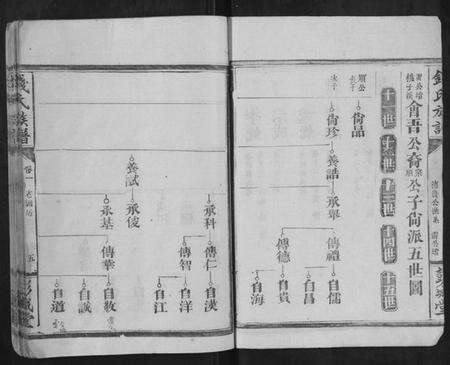 錢氏族譜
會吾公裔
公子尙派五世圖
十一世
十二世
十三世
十四世
十五世
順公
長子
尙品
次子
尙珍
養誥
承舉
傳禮
自儒
自昌
傳德
自貴
自海
承科
傳仁
自漢
自洋
傳智
自江
養試
承俊
承基
傳華
自敎
自誠
自道
錢氏族譜
卷一
五
彭城堂